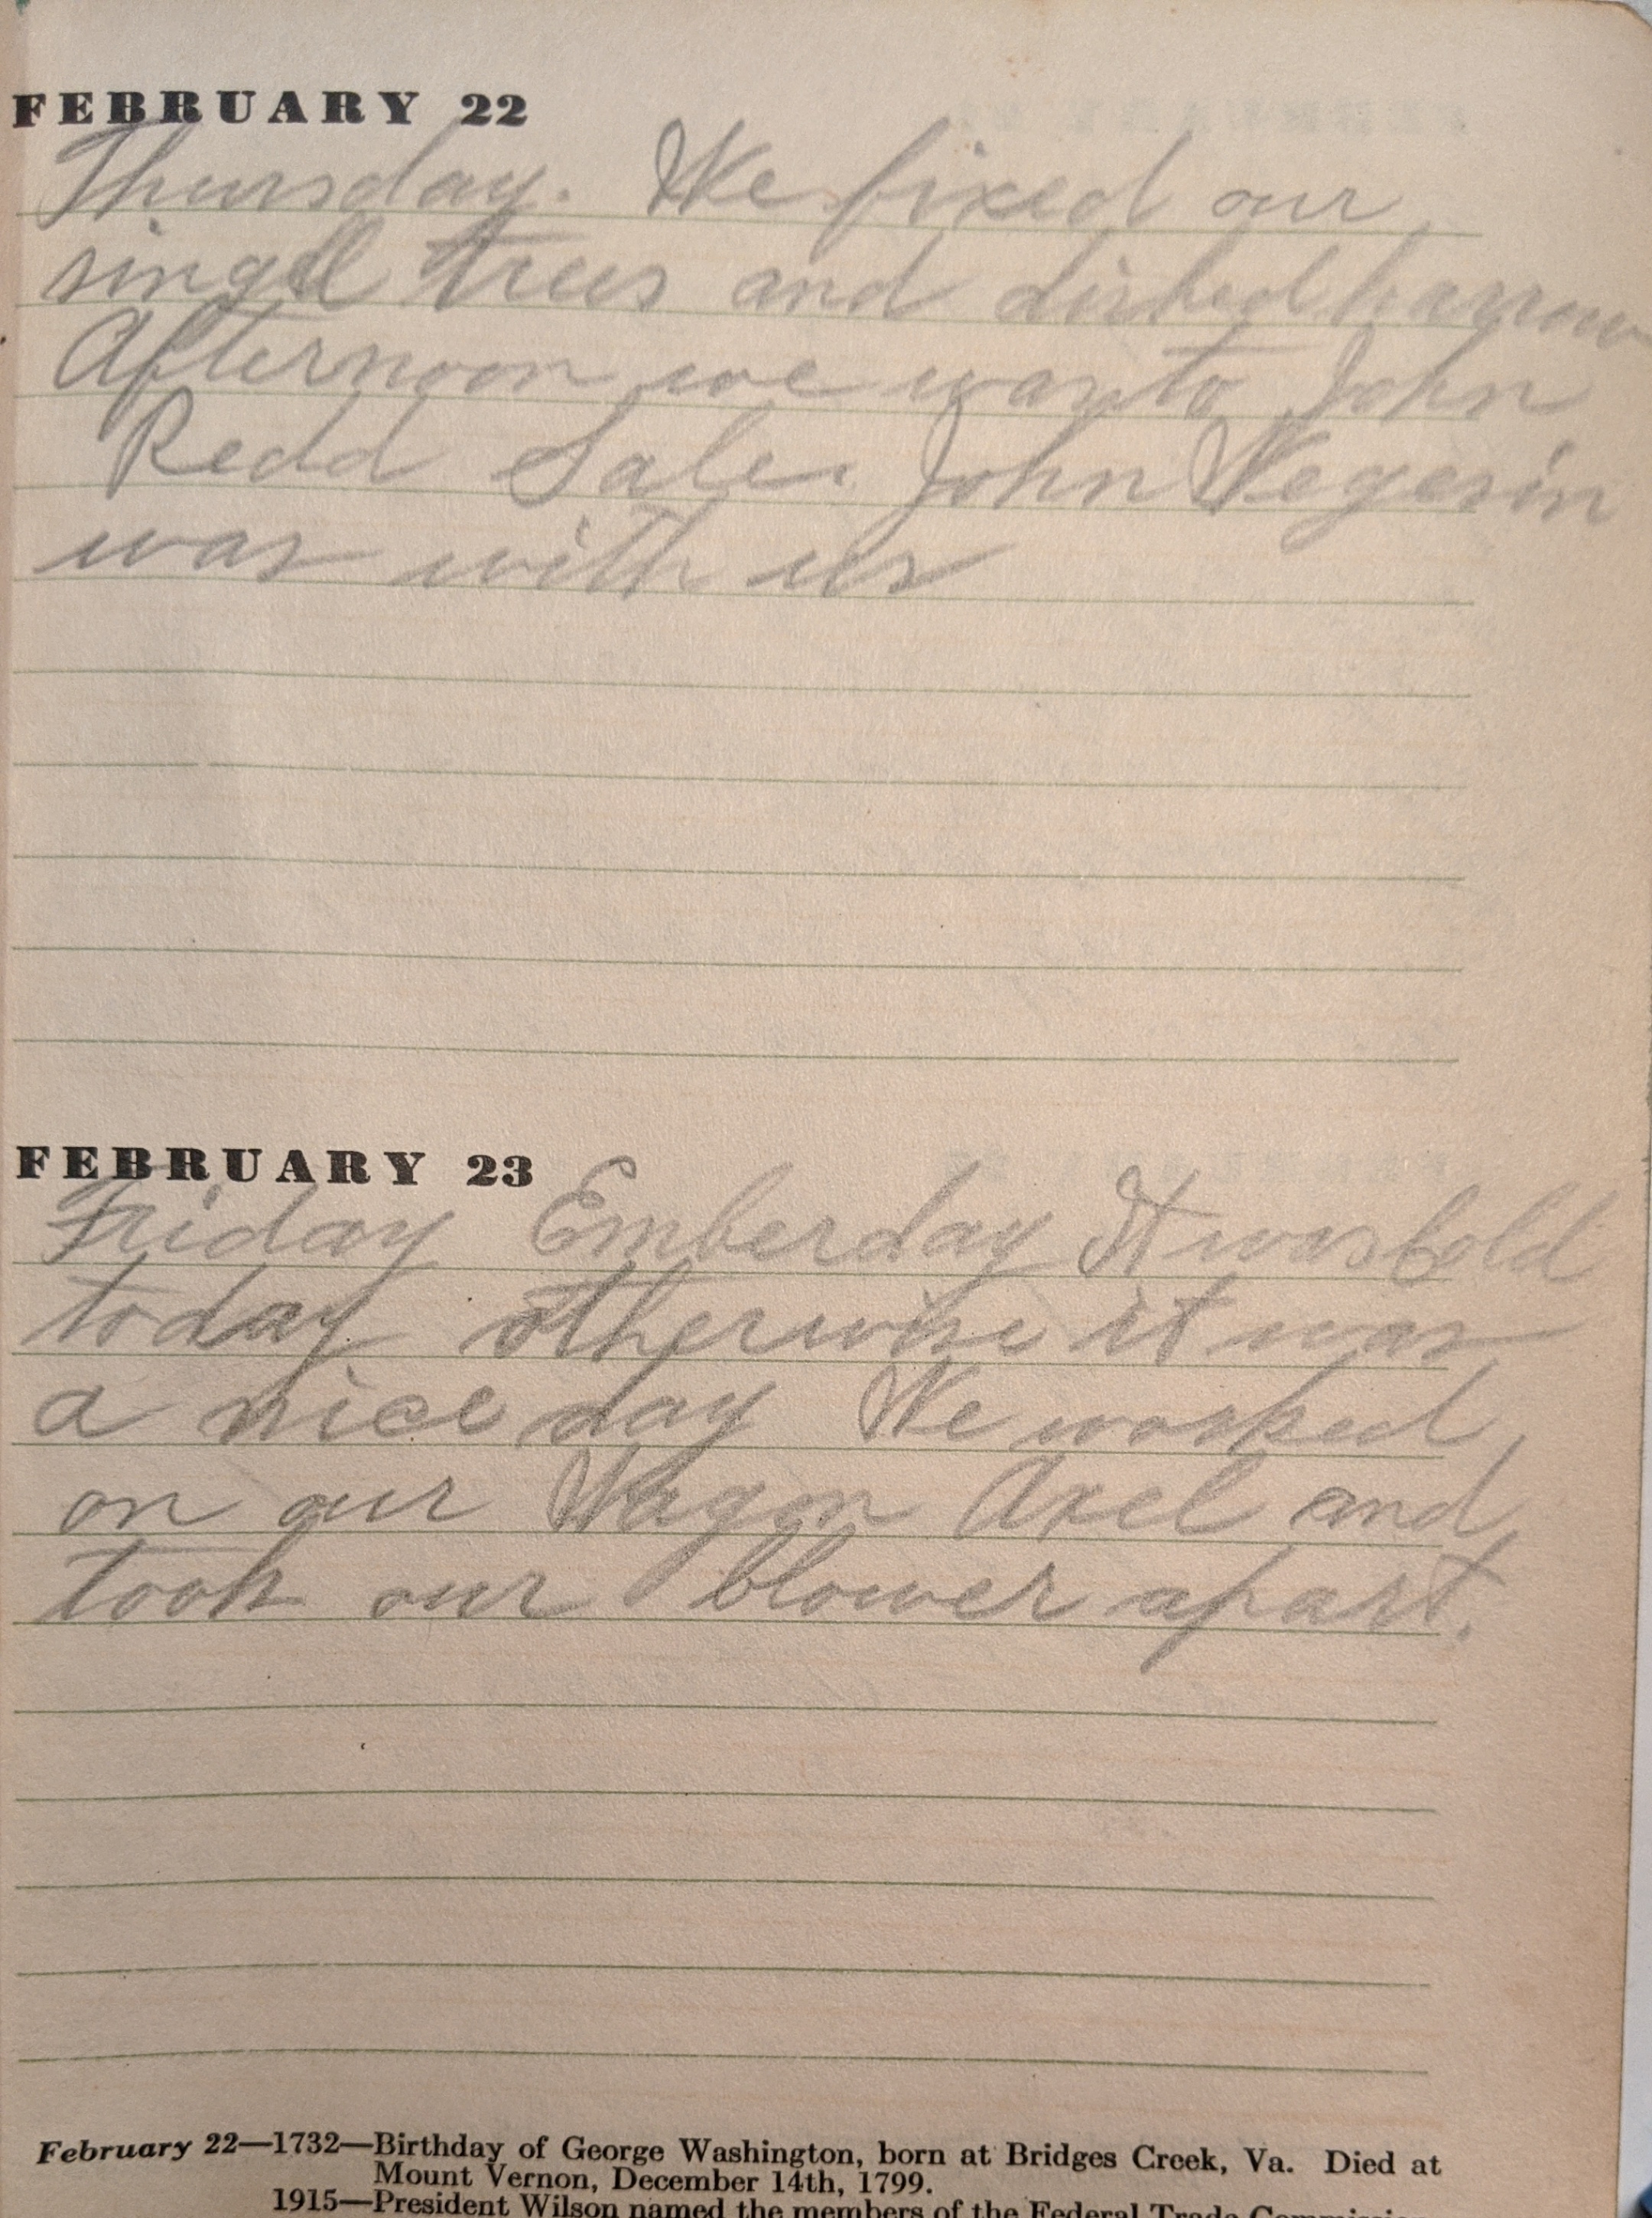 FEBRUARY 22
Thursday. We fixed our
singel trees and disked harrow
Afternoon we was to John
Redd Sale. John Wegesin
was with us
FEBRUARY 23
Friday Emberday It was cold
today otherwise it was
a nice day We worked
on our Wagon Axel and
took our blower apart.
February 22—1732—Birthday of George Washington, born at Bridges Creek, Va. Died at
Mount Vernon, December 14th, 1799.
1915—President Wilson named the members of the Federal Trade Commission